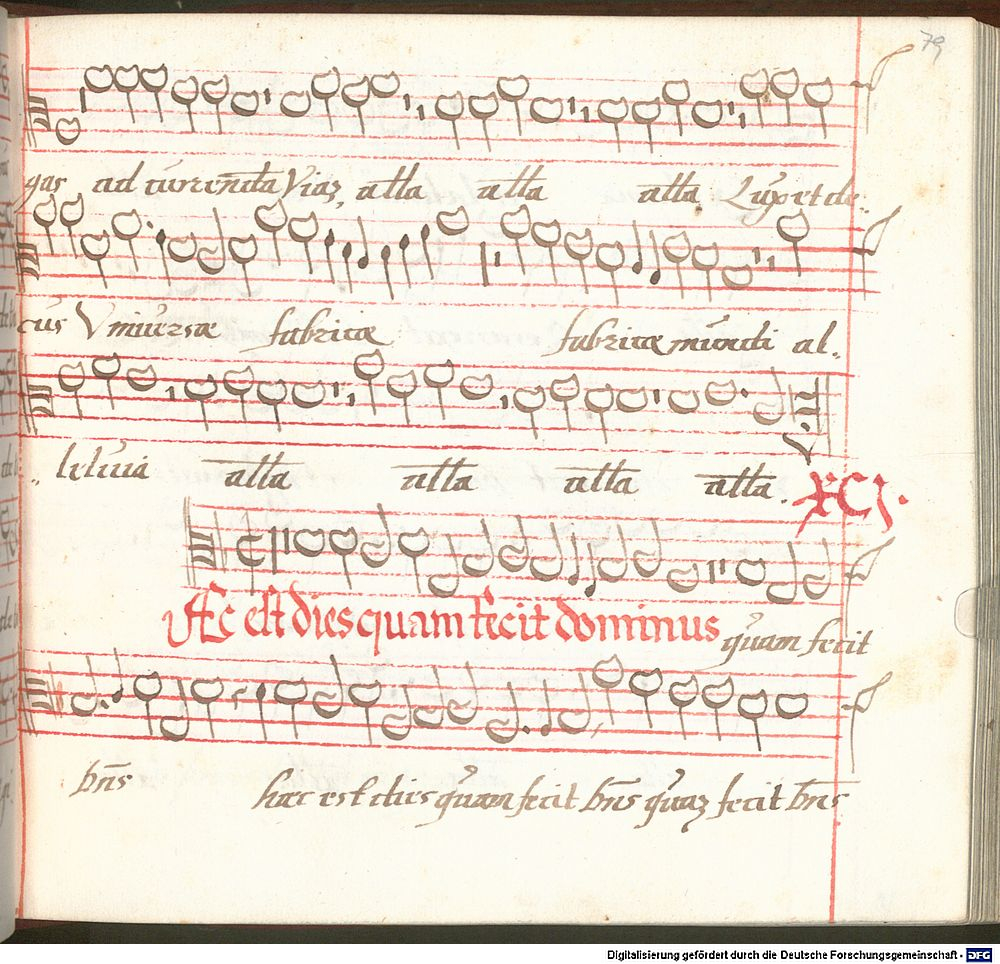 79
gas ad currẽda Viaz, alła alła alła Lux et de..
cus Vniversæ fabricæ fabricæ mũndi al..
..leluia alła alła alła alła.
XCj.
Hæc est dies quam fecit dominus quam fecit
dñs hæc est dies quam fecit dñs quaz fecit dñs
Digitalisierung gefördert durch die Deutsche Forschungsgemeinschaft - DFG